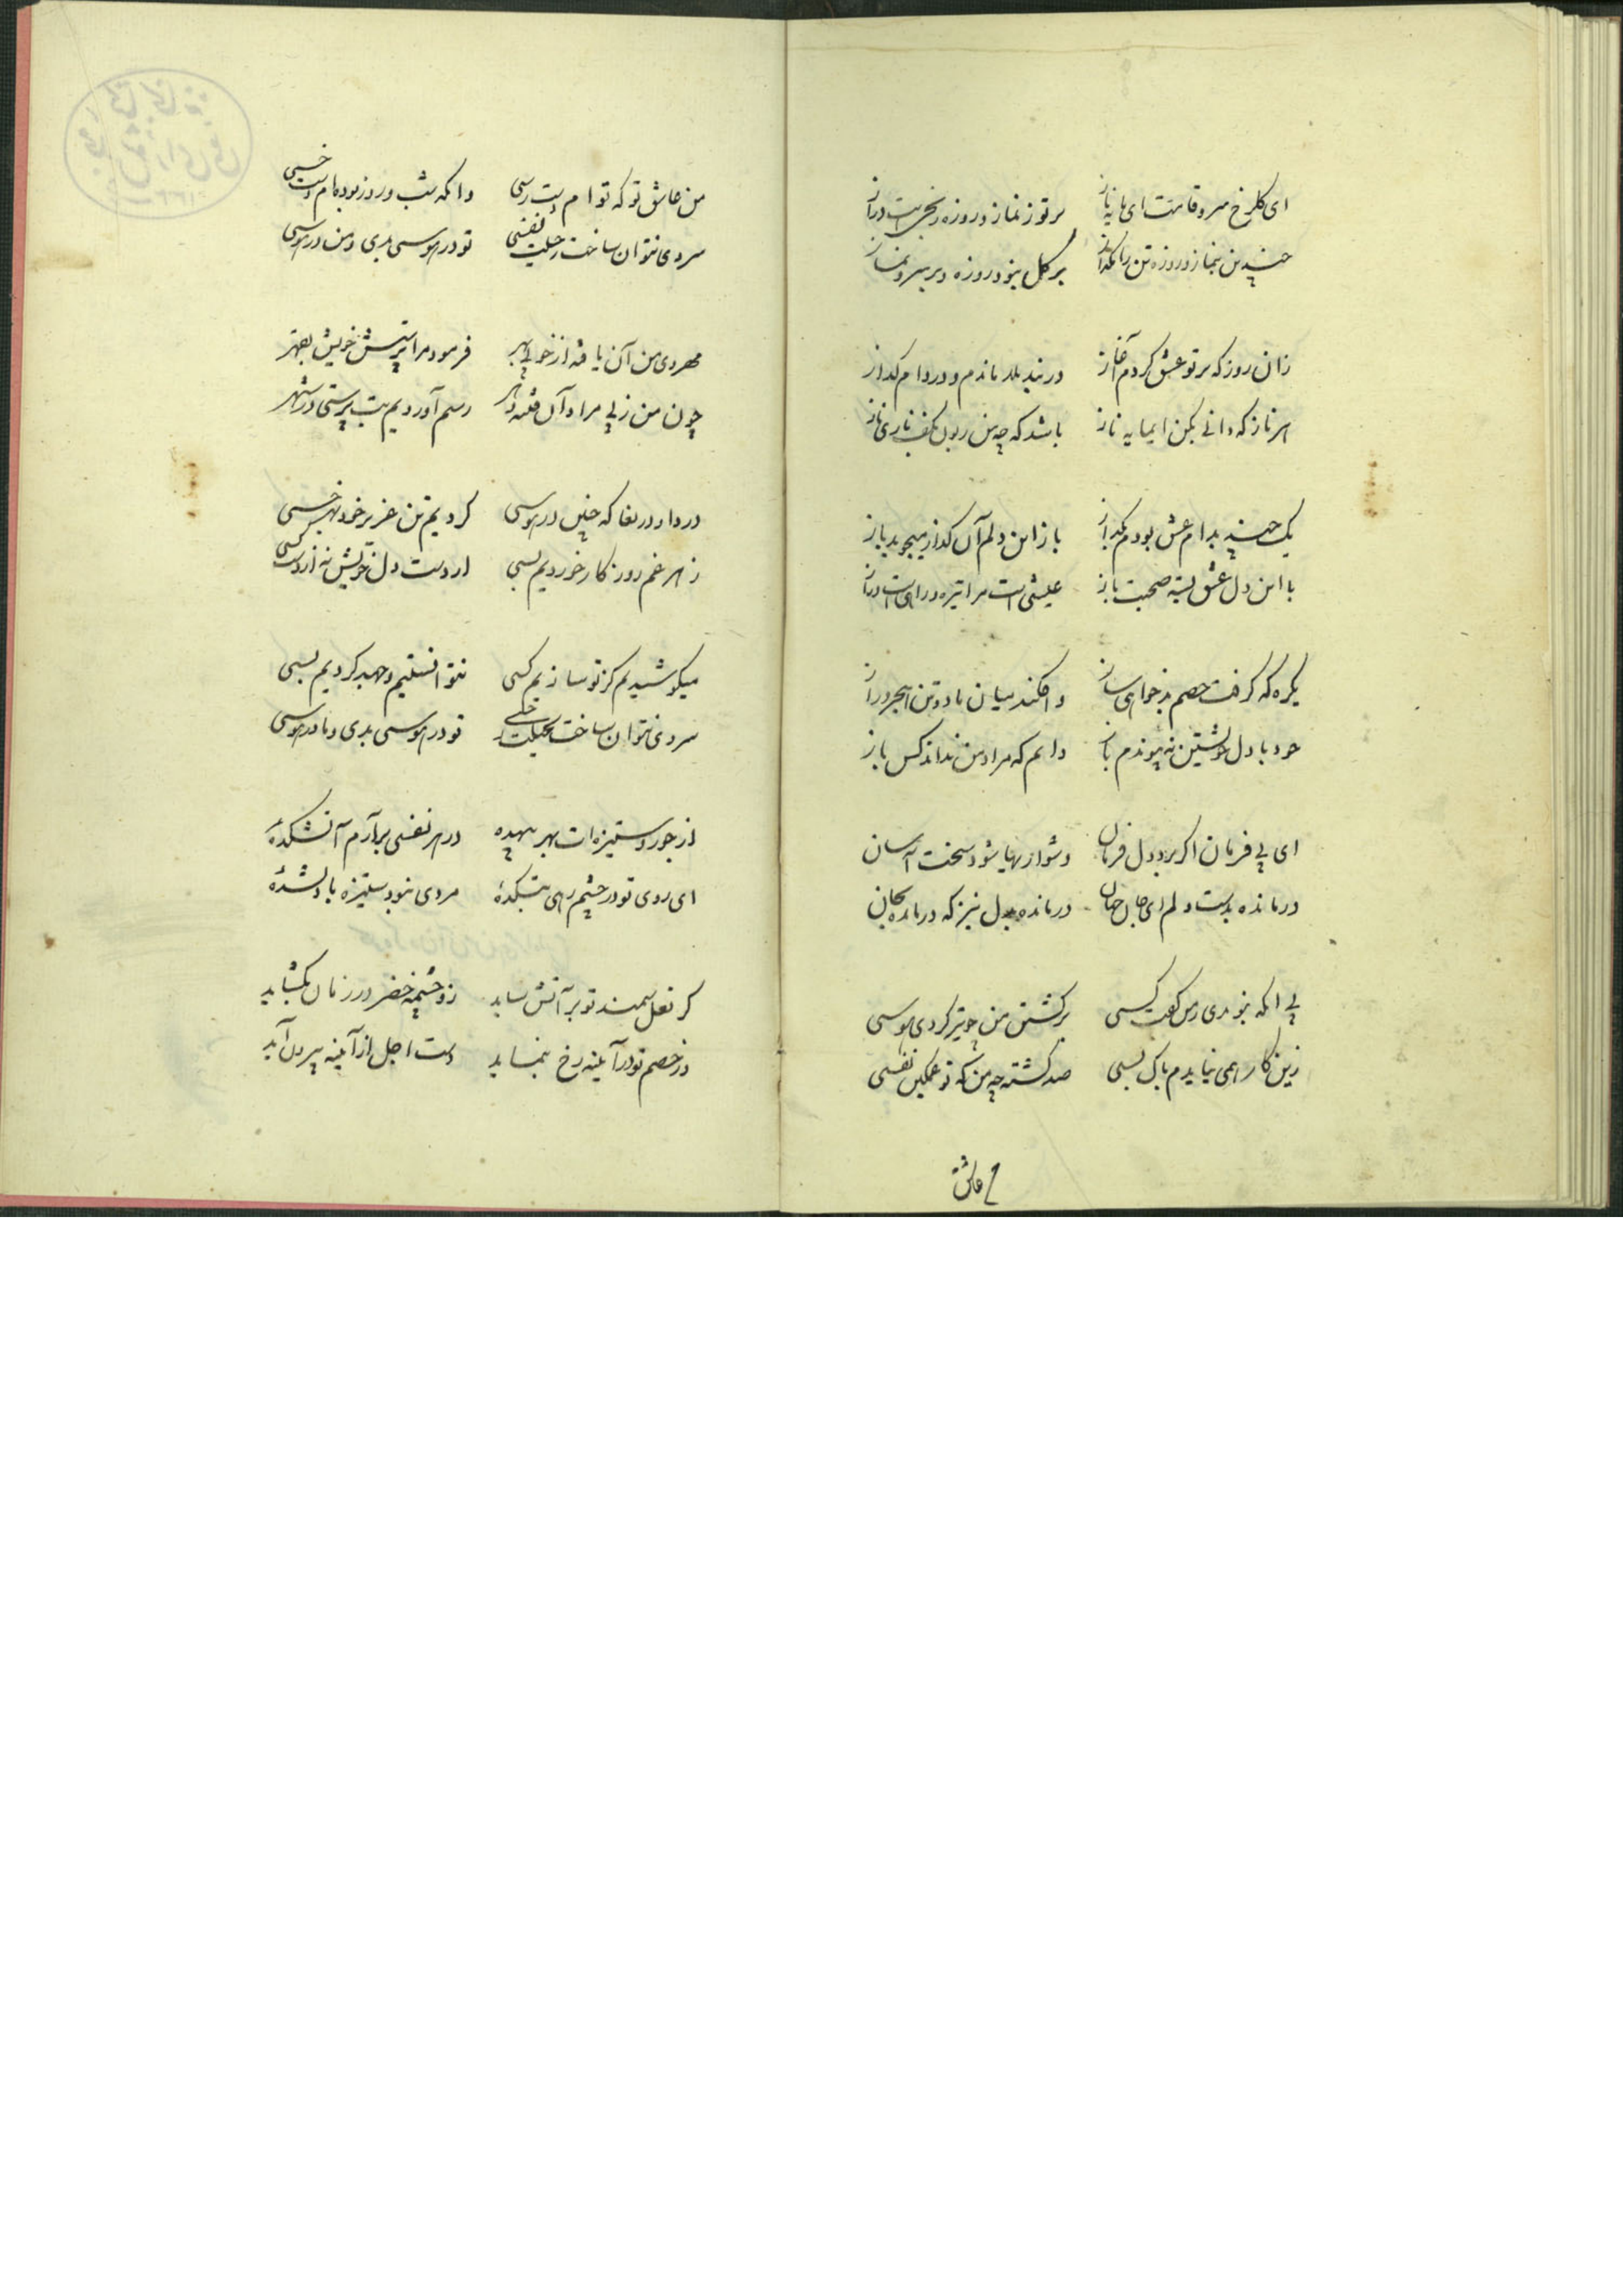 ای کلرخ سرو قامت ای مایه ناز بر تو ز نماز و روزه رنجیست دراز
چندین بنماز و روزه تن را مکداز بر کل نبود روزه و بر سرو نماز
زان روز که بر تو عشق کردم آغاز در بند بلا ماندم و در دام کداز
هر ناز که دانی بکن ای مایه ناز باشد که چه من ربون بکف ناری باز
یک چند بدام عشق بودم بکداز باز این دلم آن کداز میجوید باز
با این دل عشق پیشه صحبت باز عیشی است مرا تیره و راهی است دراز
یکره که کرفت خصم بدخواهی ساز وافکند میان ما و تن هجر دراز
خود با دل خویشتن نه پیوندم باز دانم که مراد من نداند کس باز
ای بی فرمان اکر برد دل فرمان دشوار بهایشود سخت آسان
درمانده بدست دلم ای جان جهان درمانده بدل نیز که درمانده بجان
بی آنکه بنو بدی رمن کفت کسی بر کشتن من چو تیر کردی هوسی
زین کار همی نیایدم باک بسی صد کشته چو من به که تو غمکین نفسی
من عاشق
من عاشق تو که تو ام دست رسی وانکه شب و روز بوده ام دست خسی
سردی نتوان ساخت بحیلت نفسی تو در هوسی بدی و من در هوسی
مهروی من آن یافته از خوبی بهر فرمود مرا پرستش خویش بقهر
چون من ز پی مراد آن فتنه دهر رسم آوردیم بت پرستی در شهر
دردا و دریغا که چنین در هوسی کردیم تن عزیز خود بهر خسی
زهر غم روزکار خوردیم بسی از دست دل خویش نه از دست کسی
میکوشیدیم کز تو سازیم کسی نتوانستیم و جهد کردیم بسی
سردی نتوان ساخت بحیلت ز خسی تو در هوسی بدی و ما در هوسی
از جور و ستیزه ات بهر بیهده در هر نفسی برآرم آتشکدهٔ
ای روی تو در چشم رهی بتکدهٔ مردی نبود ستیزه با دلشدهٔ
کر نعل سمند تو بر آتش ساید زو چشمه خضر در زمان بکشاید
ور خصم تو در آینه رخ بنماید دست اجل از آینه بیرون آید